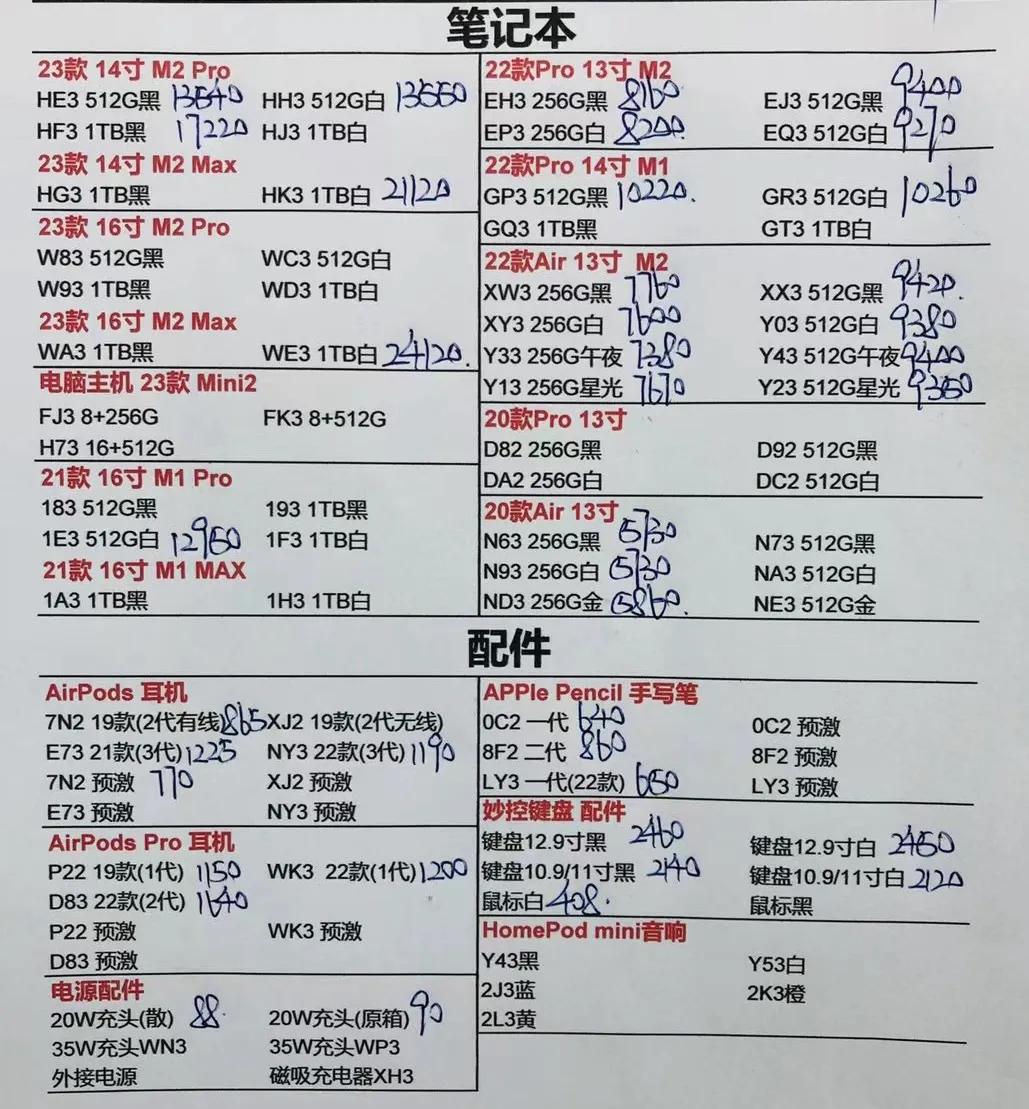 笔记本
23款 14寸 M2 Pro
HE3 512G黑 13540 HH3 512G白 13550
HF3 1TB黑 17220 HJ3 1TB白
23款 14寸 M2 Max
HG3 1TB黑 HK3 1TB白 21120
23款 16寸 M2 Pro
W83 512G黑 WC3 512G白
W93 1TB黑 WD3 1TB白
23款 16寸 M2 Max
WA3 1TB黑 WE3 1TB白 24120.
电脑主机 23款 Mini2
FJ3 8+256G FK3 8+512G
H73 16+512G
21款 16寸 M1 Pro
183 512G黑 193 1TB黑
1E3 512G白 12950 1F3 1TB白
21款 16寸 M1 MAX
1A3 1TB黑 1H3 1TB白
22款Pro 13寸 M2
EH3 256G黑 8160 EJ3 512G黑 9400
EP3 256G白 8200. EQ3 512G白 9270
22款Pro 14寸 M1
GP3 512G黑 10220. GR3 512G白 10260
GQ3 1TB黑 GT3 1TB白
22款Air 13寸 M2
XW3 256G黑 7760 XX3 512G黑 9420.
XY3 256G白 7600 Y03 512G白 9380
Y33 256G午夜 7380 Y43 512G午夜 9400
Y13 256G星光 7670 Y23 512G星光 9350
20款Pro 13寸
D82 256G黑 D92 512G黑
DA2 256G白 DC2 512G白
20款Air 13寸
N63 256G黑 5730 N73 512G黑
N93 256G白 5730 NA3 512G白
ND3 256G金 5860. NE3 512G金
配件
AirPods 耳机
7N2 19款(2代有线) 865 XJ2 19款(2代无线)
E73 21款(3代) 1225 NY3 22款(3代) 1190
7N2 预激 770 XJ2 预激
E73 预激 NY3 预激
AirPods Pro 耳机
P22 19款(1代) 1150 WK3 22款(1代) 1200
D83 22款(2代) 1640
P22 预激 WK3 预激
D83 预激
电源配件
20W充头(散) 88. 20W充头(原箱) 90
35W充头WN3 35W充头WP3
外接电源 磁吸充电器XH3
APPle Pencil 手写笔
0C2 一代 640 0C2 预激
8F2 二代 860 8F2 预激
LY3 一代(22款) 650 LY3 预激
妙控键盘 配件
键盘12.9寸黑 2460 键盘12.9寸白 2450
键盘10.9/11寸黑 2140 键盘10.9/11寸白 2120
鼠标白 408. 鼠标黑
HomePod mini音响
Y43黑 Y53白
2J3蓝 2K3橙
2L3黄